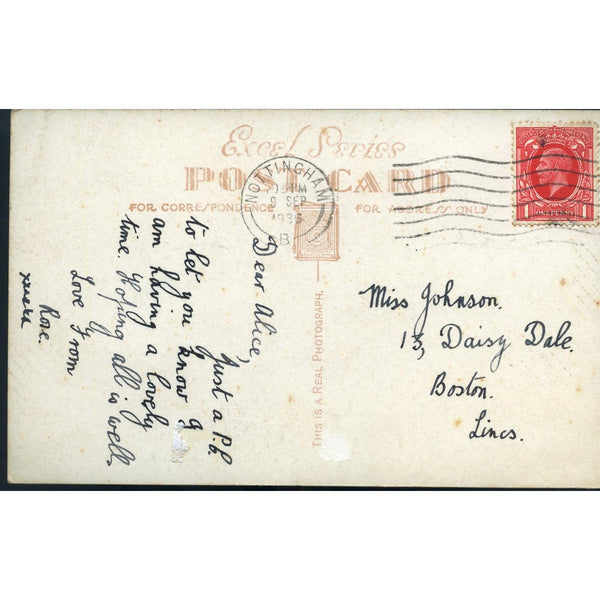 Excel Series
POST CARD
FOR CORRESPONDENCE
FOR ADDRESS ONLY
NOTTINGHAM
PM
9 SEP
193
B
ONE PENNY
1 1
THIS IS A REAL PHOTOGRAPH.
Dear Alice,
Just a P.C.
to let you know I
am having a lovely
time. Hoping all is well,
Love from
Rose.
Miss Johnson.
13, Daisy Dale.
Boston.
Lincs.